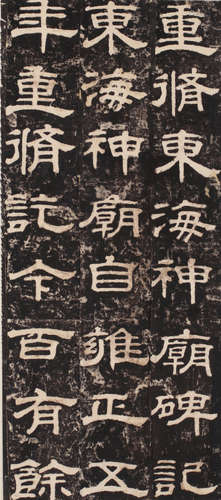 重脩東海神廟碑記
東海神廟自雍正五
年重脩訖今百有餘